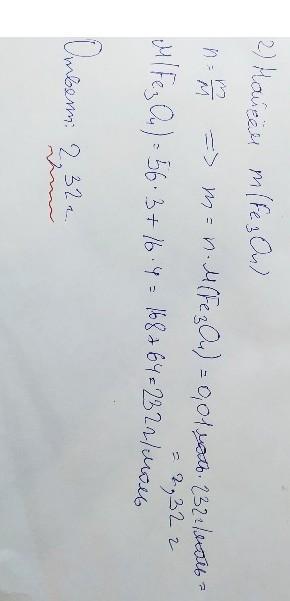 2) Найдём m(Fe3O4)
n = m/M => m = n·M(Fe3O4) = 0,01 моль·232 г/моль =
= 2,32 г
M(Fe3O4) = 56·3 + 16·4 = 168 + 64 = 232 г/моль
Ответ: 2,32 г.